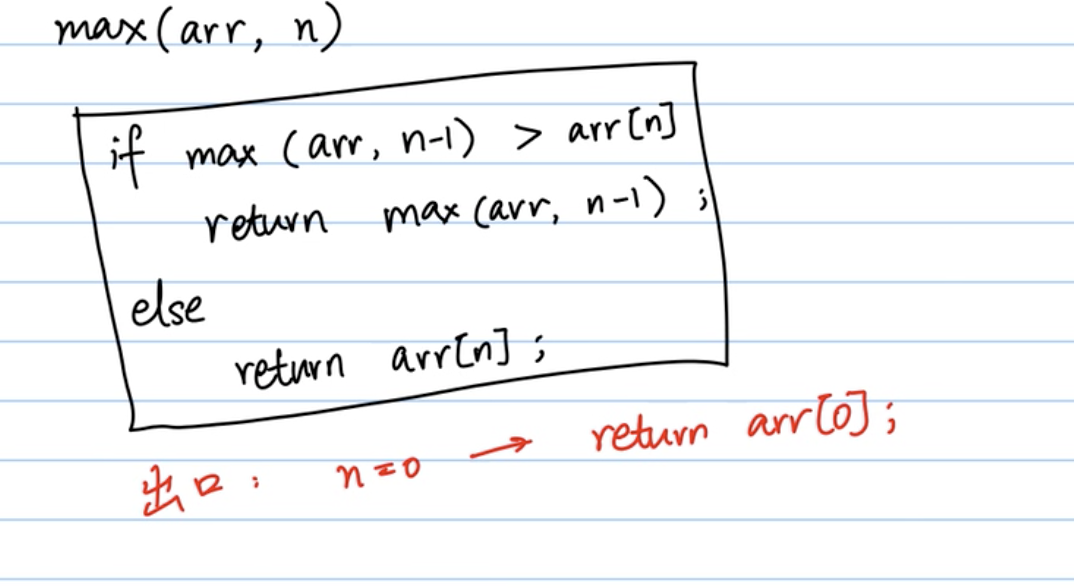 max(arr, n)
if max (arr, n-1) > arr[n]
return max(arr, n-1) ;
else
return arr[n] ;
出口: n=0 → return arr[0];